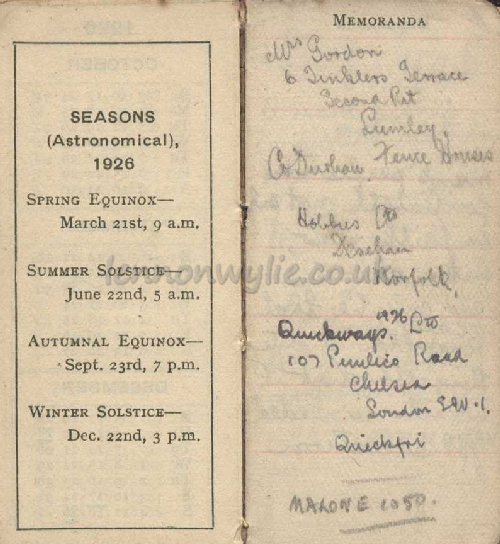 SEASONS
(Astronomical),
1926
SPRING EQUINOX—
March 21st, 9 a.m.
SUMMER SOLSTICE—
June 22nd, 5 a.m.
AUTUMNAL EQUINOX—
Sept. 23rd, 7 p.m.
WINTER SOLSTICE—
Dec. 22nd, 3 p.m.
lennonwylie.co.uk
MEMORANDA
Mrs Gordon
6 Tinklers Terrace
Second Pit
Lumley,
Fence Houses
Co Durham.
Hobbies Ltd
Dereham
Norfolk,
Quickways. 1926 Ltd
107 Pimlico Road
Chelsea
London S.W.1.
MALONE 1050.